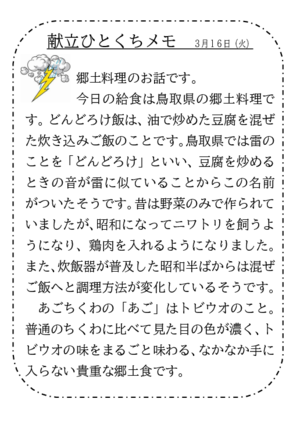 献立ひとくちメモ 3月16日(火)
郷土料理のお話です。
今日の給食は鳥取県の郷土料理で
す。どんどろけ飯は、油で炒めた豆腐を混ぜ
た炊き込みご飯のことです。鳥取県では雷の
ことを「どんどろけ」といい、豆腐を炒める
ときの音が雷に似ていることからこの名前
がついたそうです。昔は野菜のみで作られて
いましたが、昭和になってニワトリを飼うよ
うになり、鶏肉を入れるようになりました。
また、炊飯器が普及した昭和半ばからは混ぜ
ご飯へと調理方法が変化しているそうです。
あごちくわの「あご」はトビウオのこと。
普通のちくわに比べて見た目の色が濃く、ト
ビウオの味をまるごと味わる、なかなか手に
入らない貴重な郷土食です。